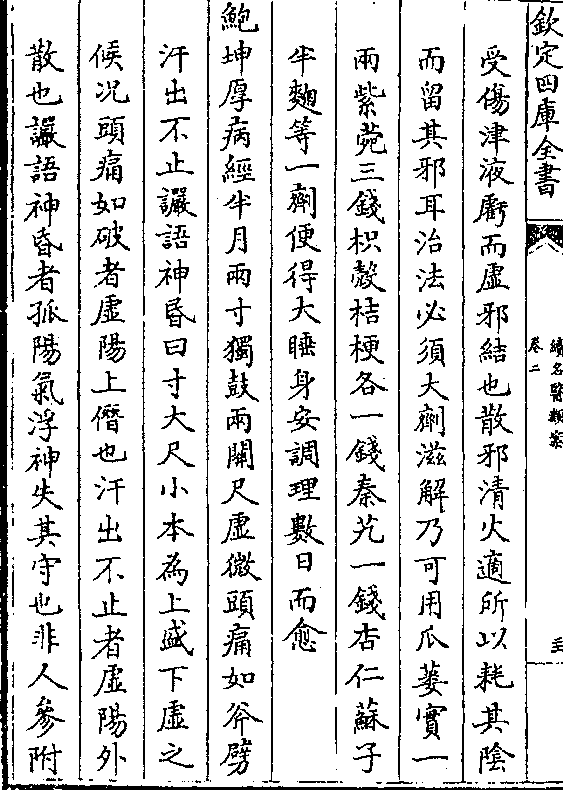 欽定四庫全書
續名醫類案
卷二
受傷津液虧而虛邪結也散邪清火適所以耗其陰
而留其邪耳治法必須大劑滋解乃可用瓜蔞實一
兩紫菀三錢枳殼桔梗各一錢秦艽一錢杏仁蘇子
半麯等一劑便得大睡身安調理數日而愈
鮑坤厚病經半月兩寸獨鼓兩關尺虛微頭痛如斧劈
汗出不止讝語神昏曰寸大尺小本為上盛下虛之
候况頭痛如破者虛陽上僭也汗出不止者虛陽外
散也讝語神昏者孤陽氣浮神失其守也非人參附